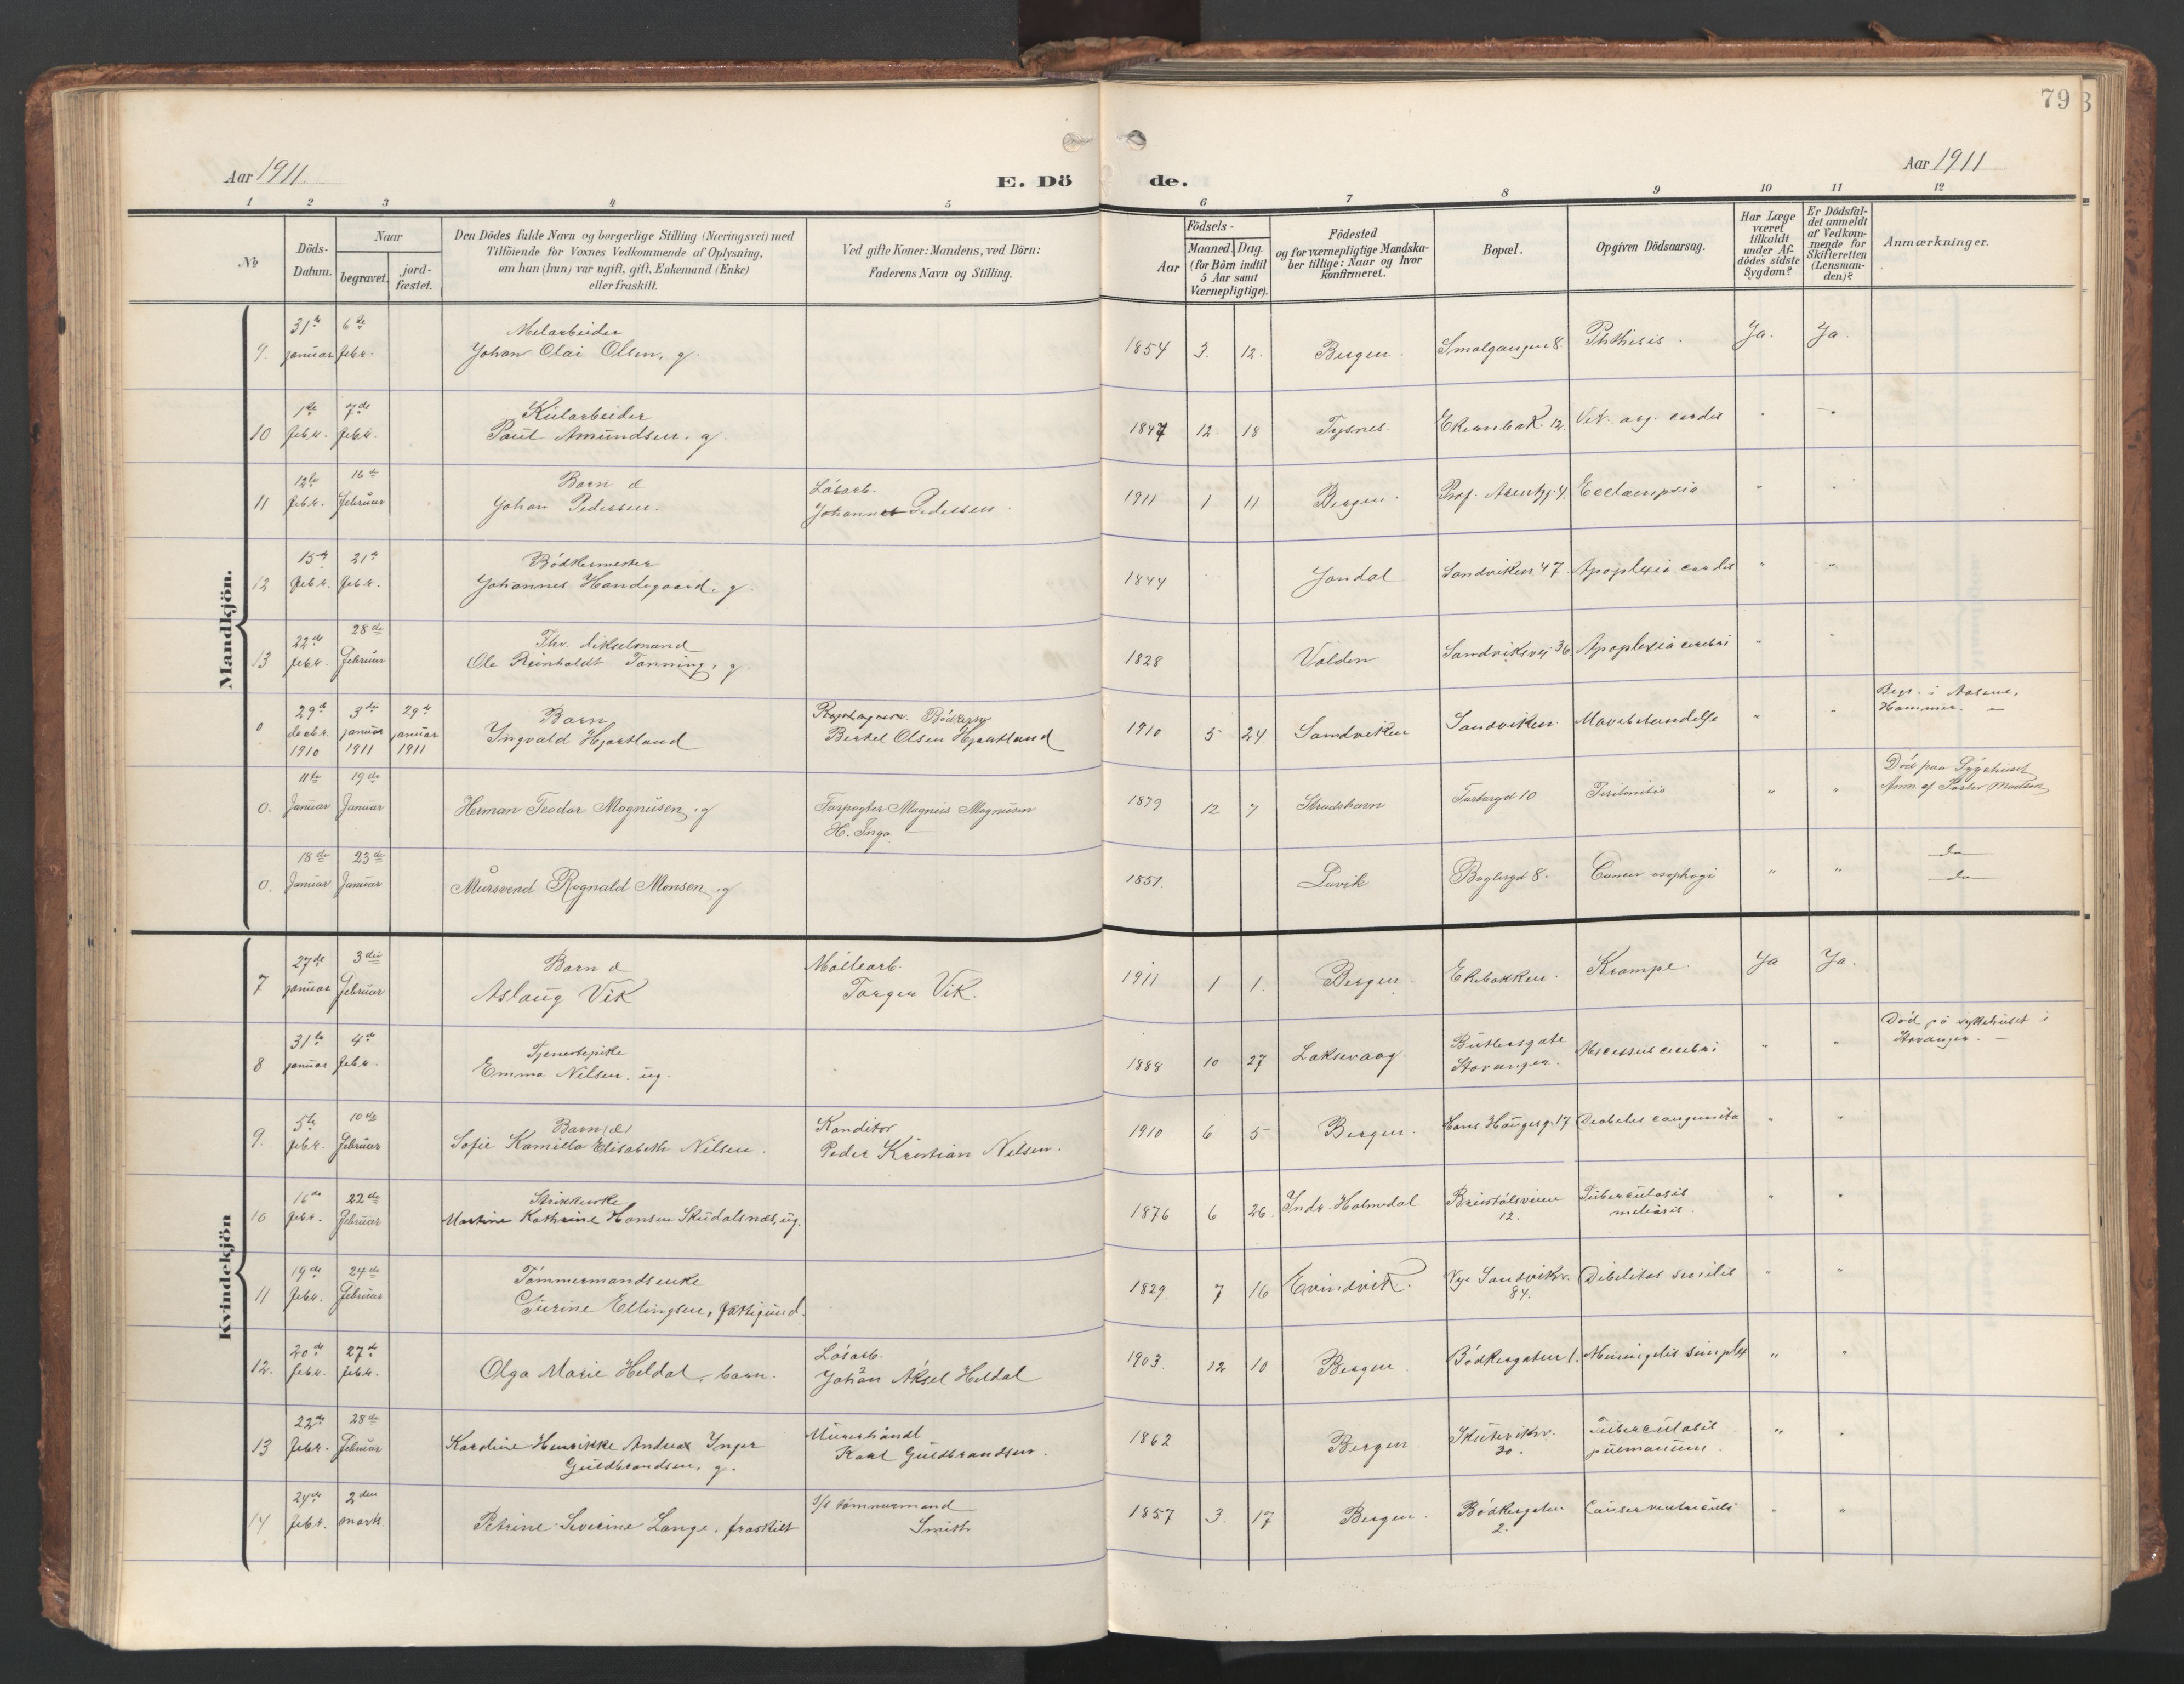 79
Aar 1911
E. Dö de.
Aar 1911
1 2 3 4 5 6 7 8 9 10 11 12
No
Döds-Datum.
Naar
begravet.
jord-fæstet.
Den Dödes fulde Navn og borgerlige Stilling (Næringsvei) med
Tilföiende for Voxnes Vedkommende af Oplysning,
om han (hun) var ugift, gift, Enkemand (Enke)
eller fraskilt.
Ved gifte Koner: Mandens, ved Börn:
Faderens Navn og Stilling.
Födsels-
Aar
Maaned Dag
(for Börn indtil
5 Aar samt
Værnepligtige).
Födested
og for værnepligtige Mandska-
ber tillige: Naar og hvor
konfirmeret.
Bopæl.
Opgiven Dödsaarsag.
Har Læge
været
tilkaldt
under Af-
dödes sidste
Sygdom?
Er Dödsfal-
det anmeldt
af Vedkom-
mende for
Skifteretten
(Lensman-
den)?
Anmærkninger.
Mandkjön.
9. 31te januar 6te febr. Melarbeider
Johan Olai Olsen, g. 1854 3. 12. Bergen. Smalgangen 8. Phthisis. Ja. Ja.
10 1ste febr. 7de febr. Kularbeider
Paul Amundsen, g. 1847 12. 18 Tysnes. Ekrenbak. 12. Vit. org. cordis " "
11 12te febr. 16de Februar Barn d
Johan Pedersen. Lösarb.
Johannes Pedersen. 1911 1 11 Bergen. Prof. 4. Eclampsia " "
12 15de febr. 21de febr. Bödkermester
Johannes Handegaard, g. 1844 Jondal Sandviken 47. Apoplexia cordis " "
13 22de febr. 28de Februar
Ole Reinholdt Tonning, g. 1828 Volden Sandviksvei 36. Apoplexia cerebri " "
0 29de decbr. 1910 3die januar 1911 29de januar 1911 Barn
Ingvald Hjortland Bertel Olsen Hjortland 1910 5 24 Sandviken Sandviken. Mavebetændelse " " Begr. i Aasene,
Hammer. —
0. 11te Januar 19de Januar Herman Teodor Magnusen, g Magnus Magnusen
H. Inga — 1879 12 7 Strudshavn 10 Peritonitis " " Död paa Sygehuset
Anm. af Pastor Madsen
0. 18de Januar 23de Januar Mursvend Rognald Monsen, g 1851. Lavik Baglergd 8. Cancer osophagi " " do
do
Kvindekjön
7 27de januar 3die Februar Barn d
Aslaug Vik Möllearb.
Torger Vik. 1911 1 1. Bergen. Ekebakken. Krampe. Ja Ja.
8 31te januar 4de febr. Tjenestepike
Emma Nilsen, ug. 1888 10 27 Laksevaag. Butlersgate
Stavanger. Abcessus cerebri " " Död på sykehuset i
Stavanger. —
9. 5te febr. 10de Februar Barn (d)
Sofie Kamilla Elisabeth Nilsen. Konditor
Peder Kristian Nilsen. 1910 6 5 Bergen. Hans Haugesg. 17 Diabetes congenita " "
10 16de febr. 22de Februar
Martine Kathrine Hansen Skudalsnæs, ug. 1876 6 26. Indr. Holmedal 12. Tuberculosis
miliaris. " "
11 19de febr. 24de Februar Tömmermandsenke
Turine Ellingsen, fattigund. 1829 7 16 Evindvik. Nye Sandviksv.
84. Debilitas senilis " "
12. 20de febr. 27de febr. Olga Marie Heldal, barn. Lösarb.
Johan Aksel Heldal 1903. 12 10 Bergen. Bödkergaten 1. Meningitis simplex " "
13 22de febr. 28de Februar Karoline Henrikke Andrea Inger
Guldbrandsen, g. Murerhåndl.
Karl Guldbrandsen. 1862 Bergen Skutevikv.
30. Tuberculosis
pulmonum. " "
14 24de febr. 2den marts. Petrine Severine Lange, fraskilt F/s tömmermand
Smith 1857 3. 17 Bergen. Bödkergaten
2. Cancer ventriculi " "